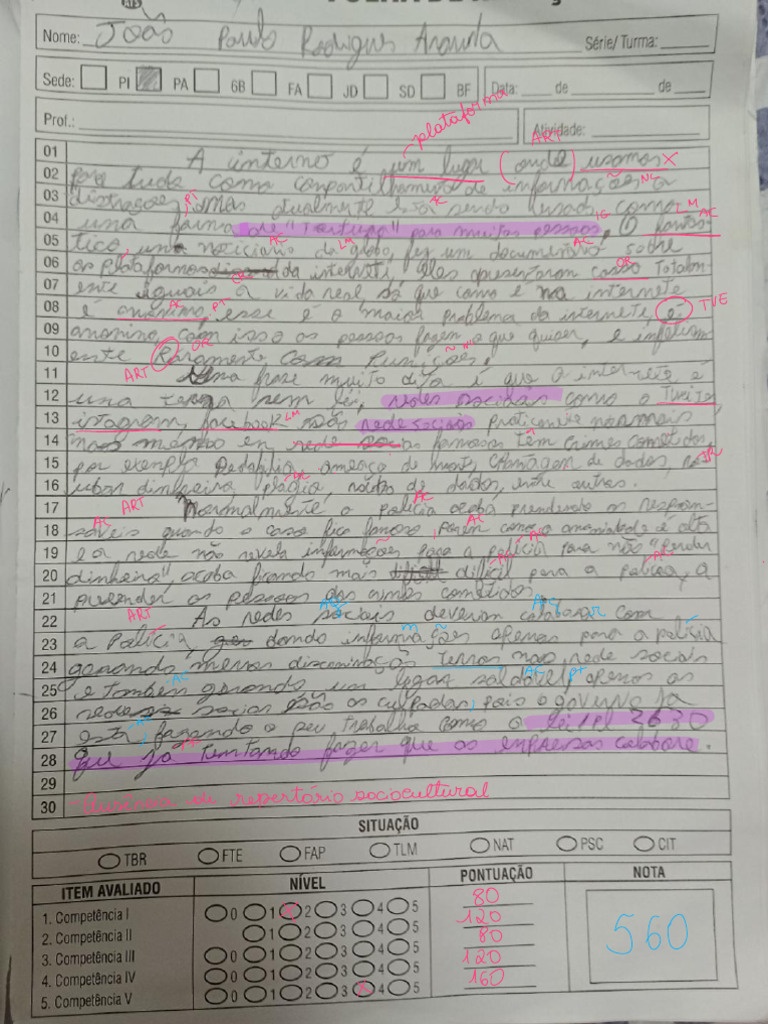 Nome: João Paulo Rodrigues Série/ Turma:
Sede: PI PA GB FA JD SD BF Data: de de
Prof.: Atividade:
plataforma
ART
01 A interno é um lugar (onde) usamos X
02 para tudo como compartilhamento de informações a
03 distração, mas atualmente está sendo usada como
04 uma forma de "Tortura" para muitas pessoas, O fantás-
05 tico, uma noticiário da globo, fez um documentário sobre
06 as plataformas da internet, eles apresentaram casso Totalm-
07 ente iguais a vida real, só que como é na internete
08 é anonimo, esse é o maior problema da internete, e TVE
09 anonimo, com isso as pessoas fazem o que quizer, e infelizm
10 ente Raramente com Punições.
11 Uma frase muito dita é que a internete é
12 uma terra sem lei, redes sociais como o Twite
13 istagram, facebook são rede sociais praticante normais,
14 mas mesmo en rede famosas têm crimes cometidos,
15 por exemplo Pedofilia, ameaça de morte, chantagem de dados,
16 dinheiro, plágio, roubos de dados, entre outros.
17 Normalmente a polícia acaba prendendo os respon-
18 sáveis quando o caso fica famoso, porem como a anonidade é alta
19 e a rede não revela informações para a polícia para não "Perder
20 dinheiro", acaba ficando mais difícil para a policia, a
21 preender as pessoas dos crimes cometidos.
22 As redes sociais deveriam colaborar com
23 a Polícia, dando informações apenas para a polícia
24 gerando menas discriminação nas rede sociais
25 e também gerando um lugar saldável, apenas as
26 rede socias são as culpadas, pois o governo ja
27 está fazendo o seu trabalho como a lei/pl 2630
28 que ja tentando fazer que as empresas colabore.
29
30 - Ausência de repertório sociocultural
SITUAÇÃO
TBR FTE FAP TLM NAT PSC CIT
ITEM AVALIADO NÍVEL PONTUAÇÃO NOTA
1. Competência I 0 1 2 3 4 5 80
2. Competência II 1 2 3 4 5 120
3. Competência III 0 1 2 3 4 5 80
4. Competência IV 0 1 2 3 4 5 120
5. Competência V 0 1 2 3 4 5 160
560